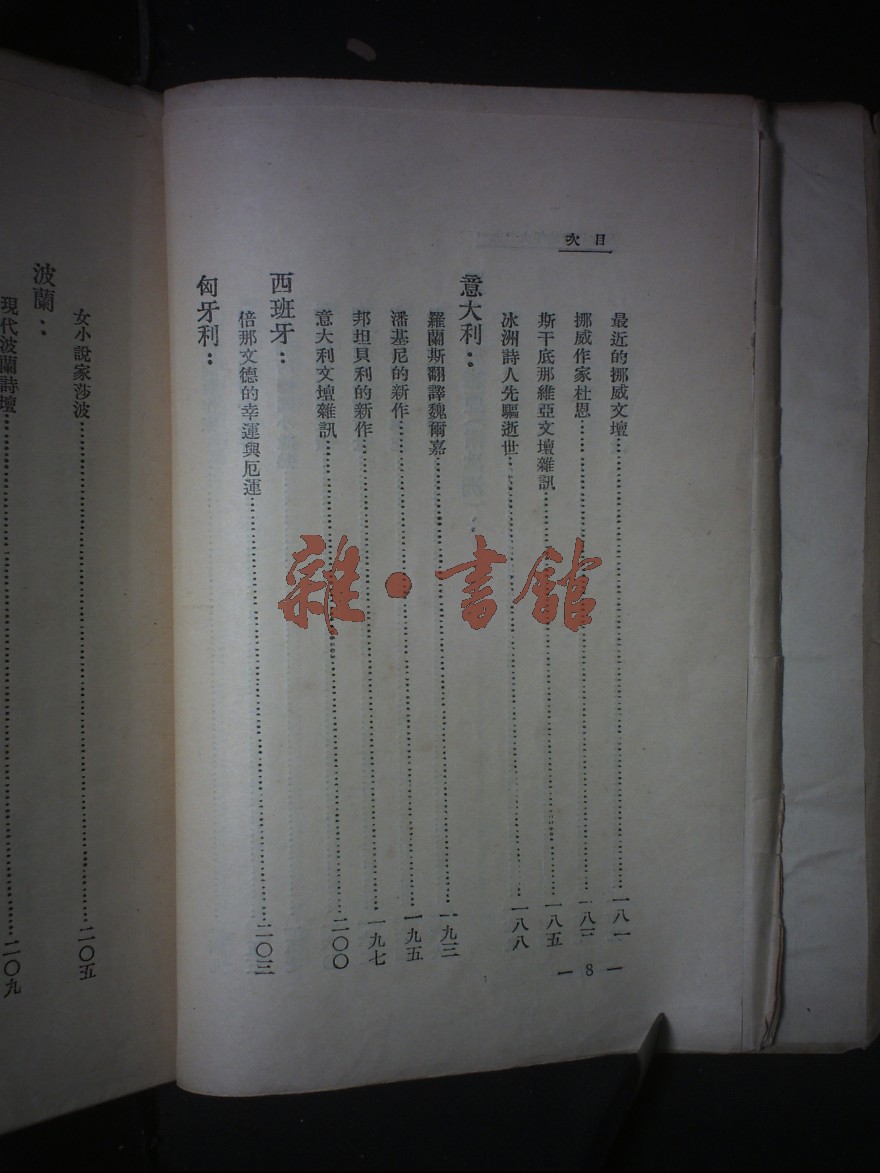 目次
最近的挪威文壇……一八一
挪威作家杜恩……一八三
斯干底那維亞文壇雜訊……一八五
冰洲詩人先驅逝世……一八八
意大利：
羅蘭斯翻譯魏爾嘉……一九三
潘基尼的新作……一九五
邦坦貝利的新作……一九七
意大利文壇雜訊……二〇〇
西班牙：
倍那文德的幸運與厄運……二〇三
匈牙利：
— 8 —
女小說家莎波……二〇五
波蘭：
現代波蘭詩壇……二〇九
雜·書館